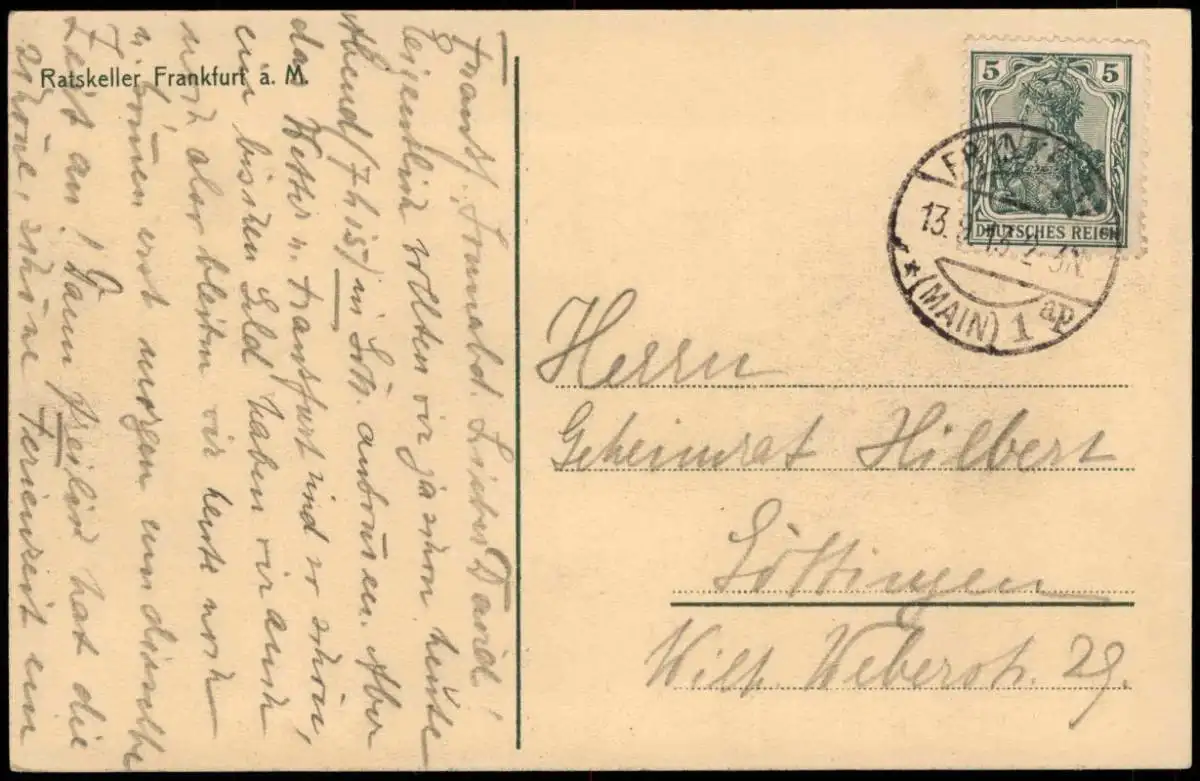 Ratskeller Frankfurt a. M.
Frankf. Sonnabd. Lieber David!
Eigentlich wollten wir ja schon heute
Abend (7h 15) in Gött. anbrausen. Aber
das Wetter u. Frankfurt sind so schön,
ein bisschen Geld haben wir auch
noch also bleiben wir heute noch
u. können erst morgen um dieselbe
Zeit an! Dann freilich hat die
schöne, schöne Ferienzeit ein
5 5
DEUTSCHES REICH
FRANKFURT
13. 13. 2-3N
* (MAIN) 1 ap
Herrn
Geheimrat Hilbert
Göttingen
Wilh. Weberstr. 29.